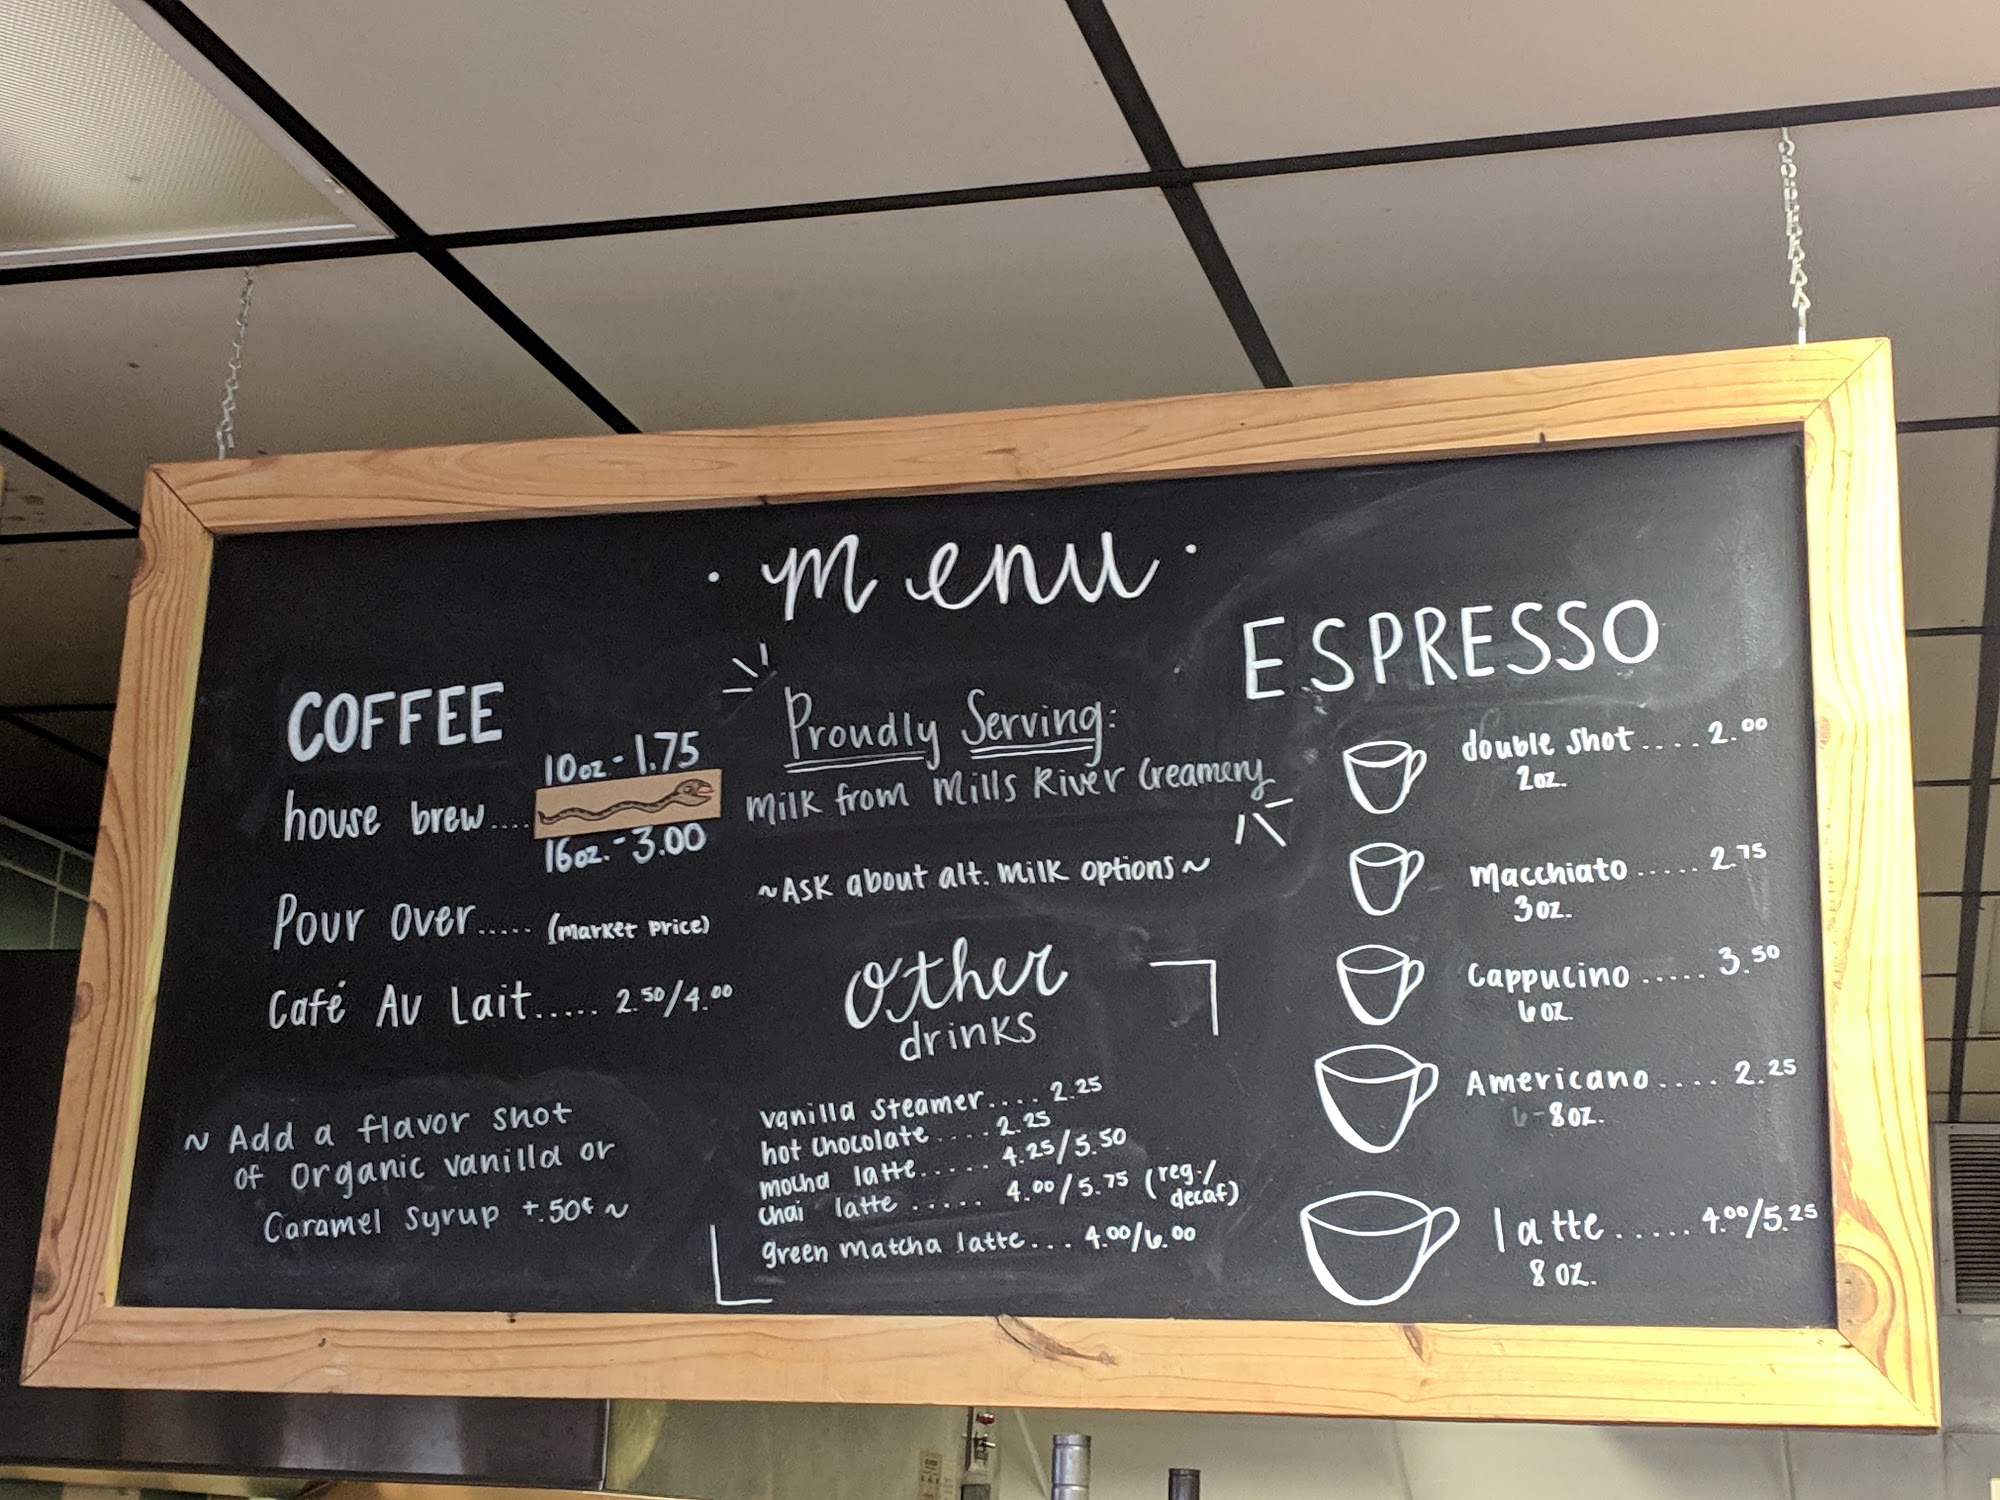 · Menu ·
COFFEE
10oz - 1.75
house brew....
16oz. - 3.00
Pour over..... (market price)
Café Au Lait..... 2.50/4.00
~ Add a flavor shot
of organic vanilla or
Caramel syrup +.50¢ ~
Proudly Serving:
milk from Mills River Creamery
~Ask about alt. milk options~
other
drinks
vanilla steamer.... 2.25
hot chocolate.... 2.25
mocha latte..... 4.25/5.50
chai latte ..... 4.00/5.75 (reg./
decaf)
green matcha latte... 4.00/6.00
ESPRESSO
double shot.... 2.00
2oz.
Macchiato..... 2.75
3oz.
Cappucino..... 3.50
6oz.
Americano.... 2.25
6-8oz.
latte..... 4.00/5.25
8 oz.